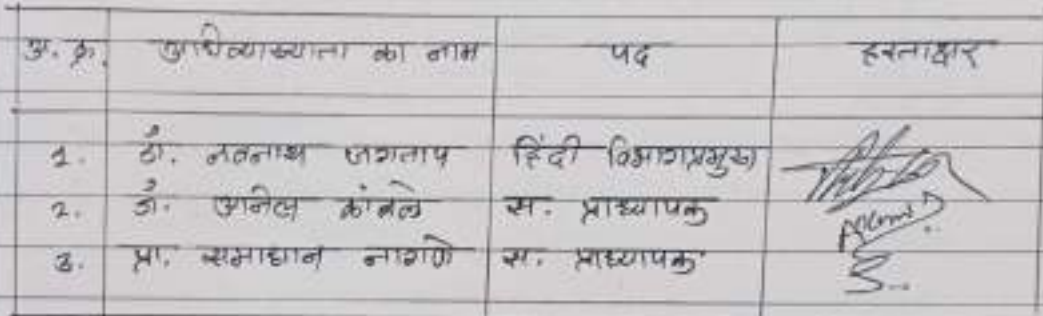 अ. क्र. अधिव्याख्याता का नाम पद हस्ताक्षर
1. डॉ. नवनाथ जगताप हिंदी विभागप्रमुख
2. डॉ. अनिल कांबले स. प्राध्यापक
3. प्रा. समाधान नागणे स. प्राध्यापक